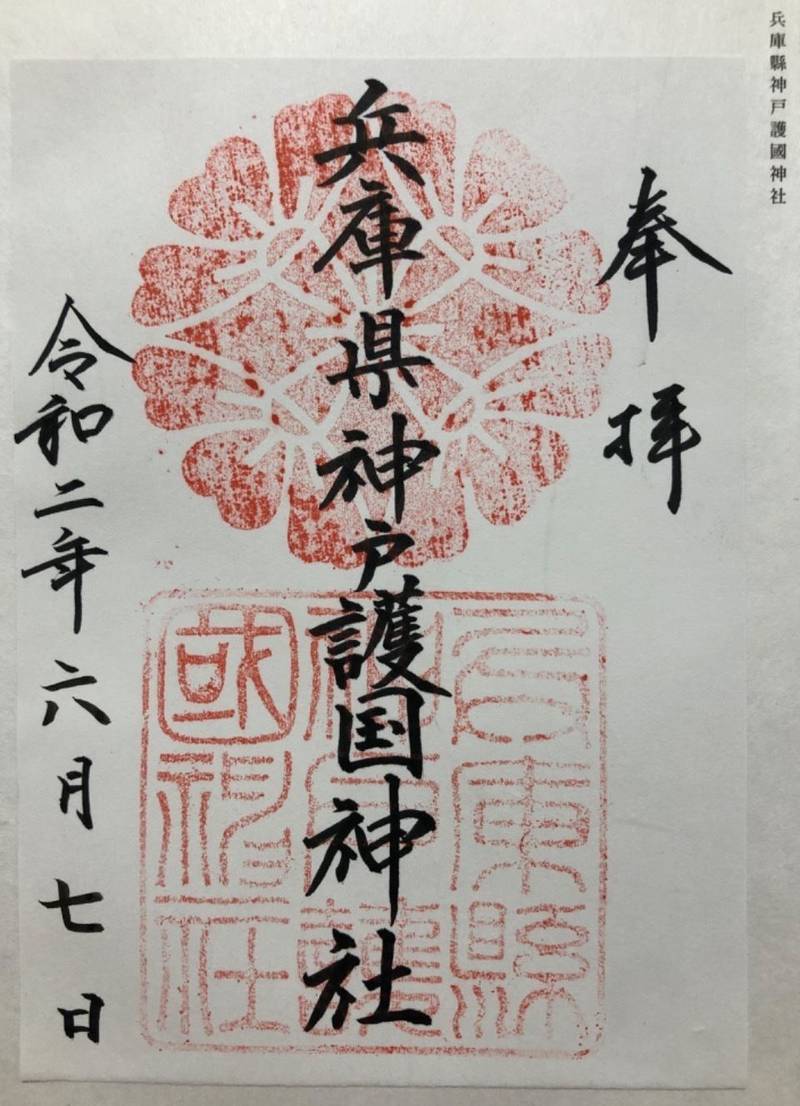 兵庫縣神戸護國神社
奉拝
兵庫県神戸護国神社
令和二年六月七日
兵庫縣
神戸護
國神社